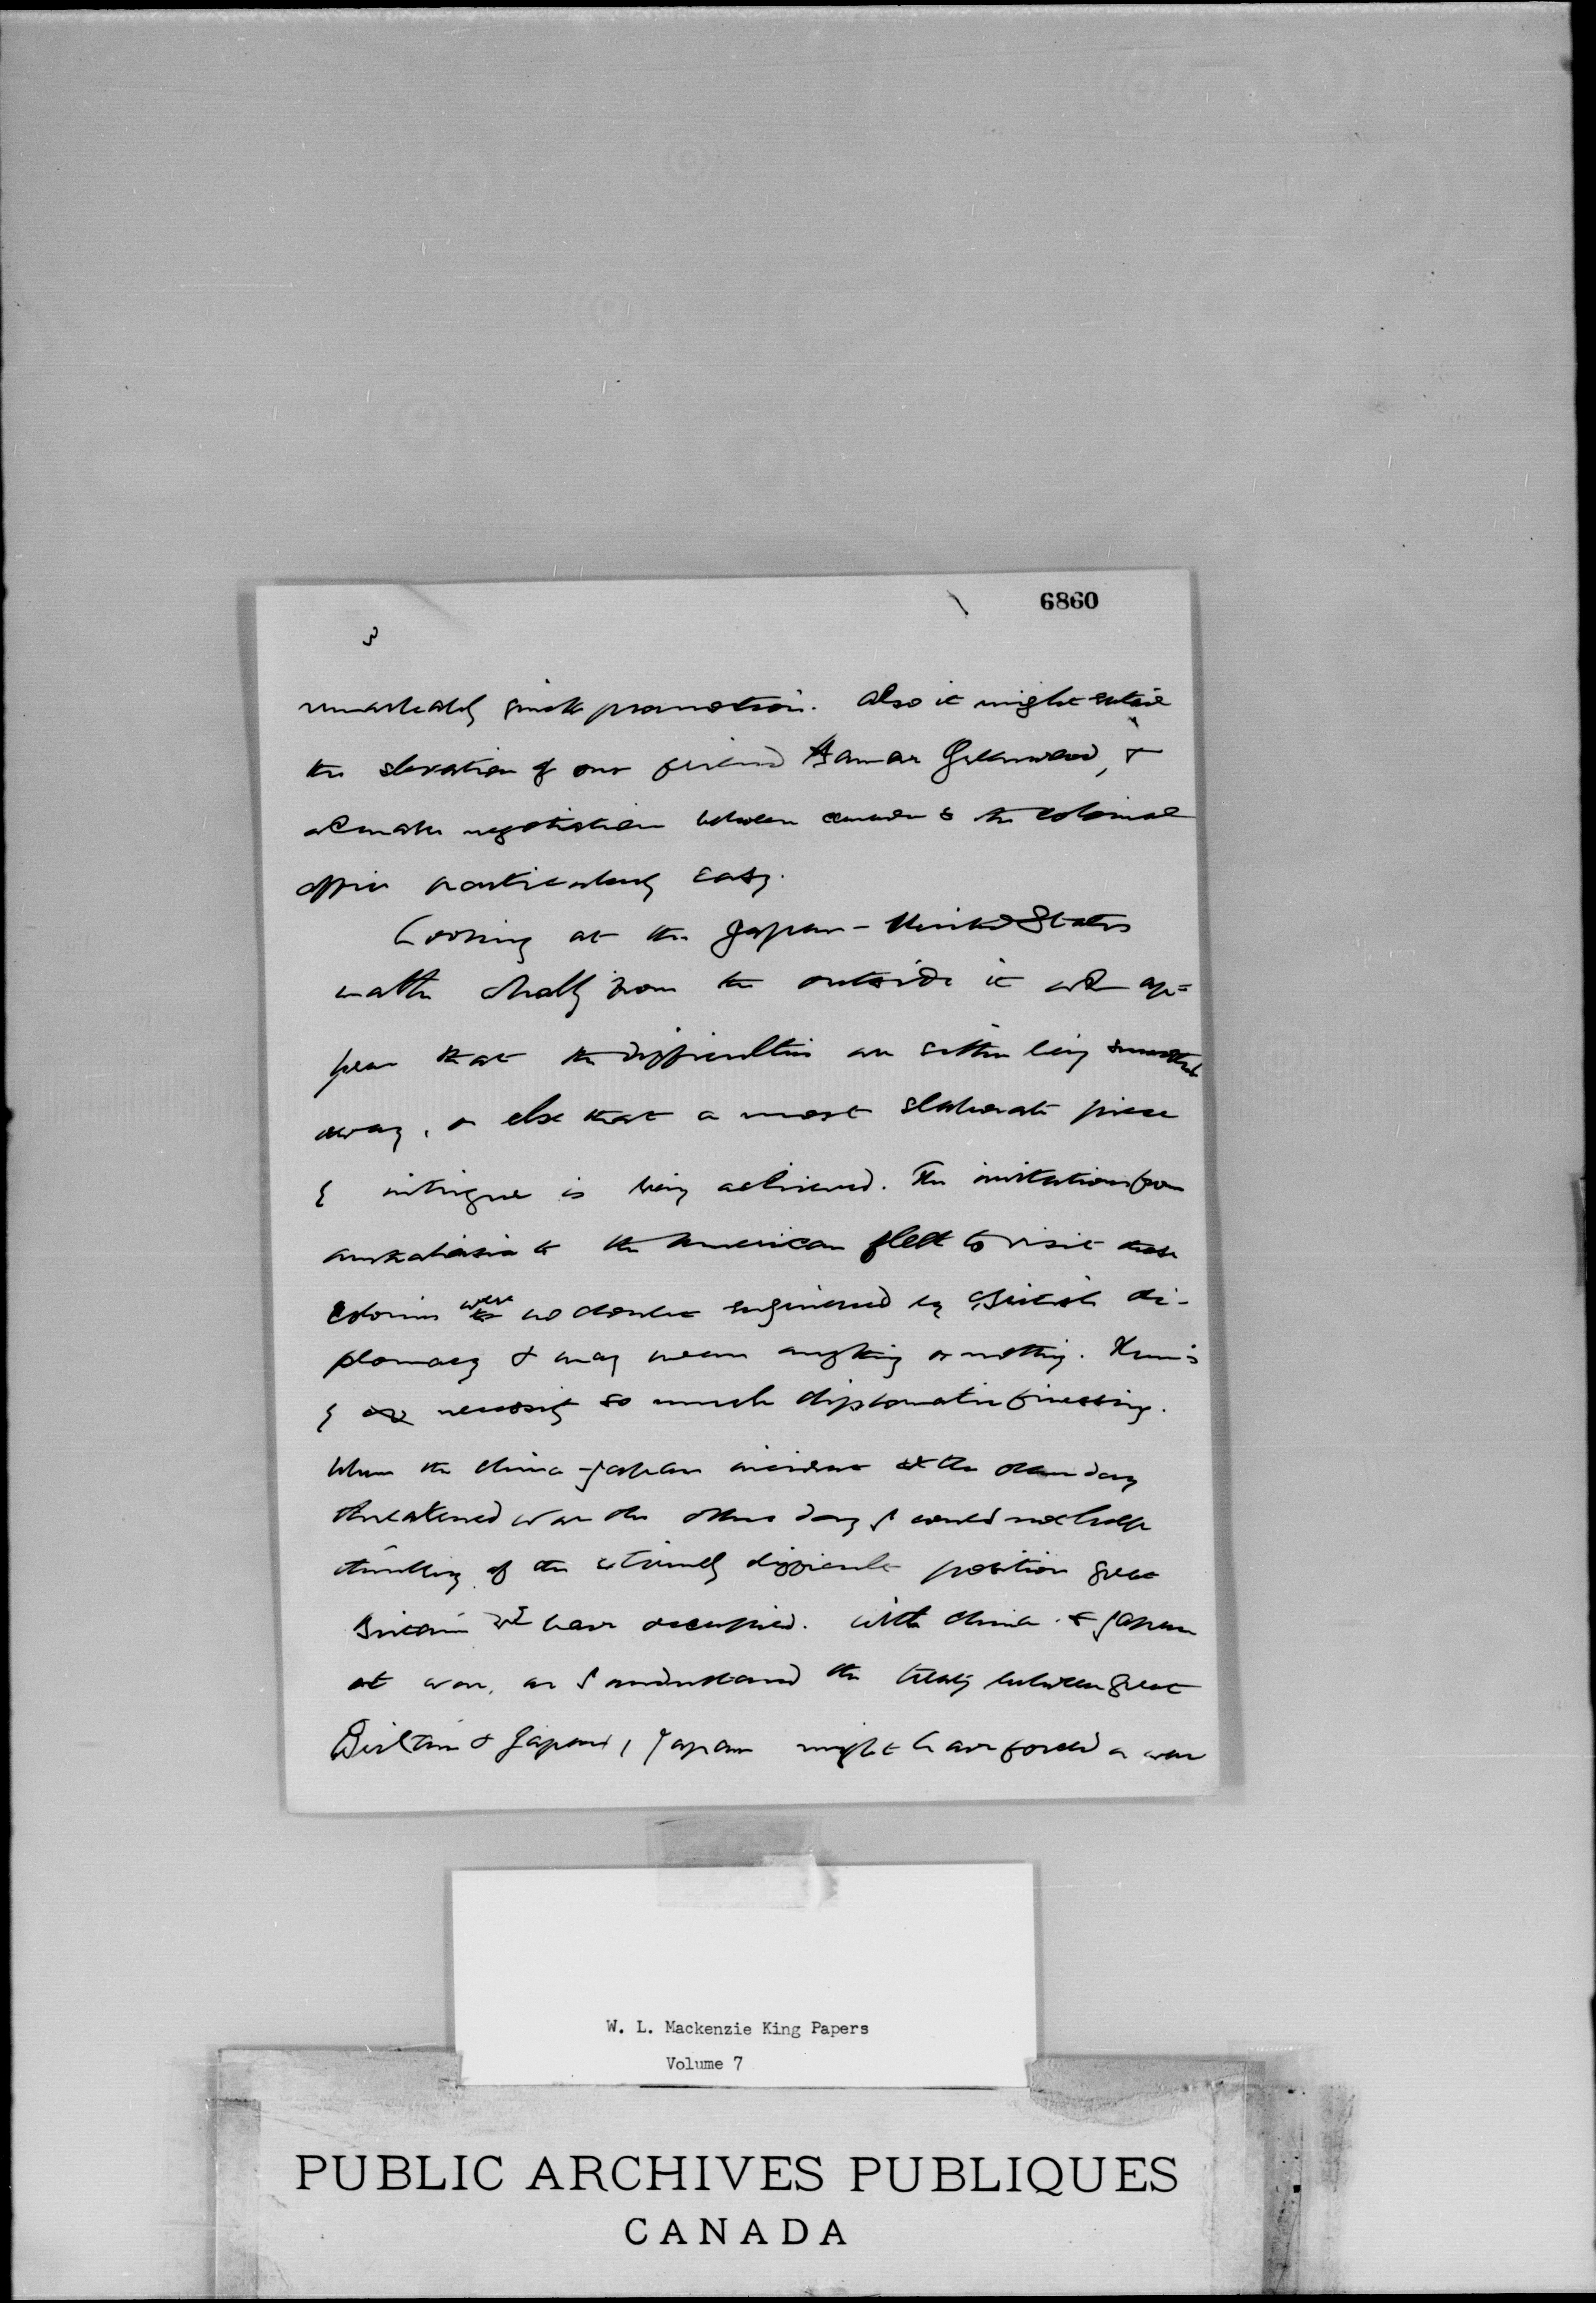 6860
3
remarkably quick promotion. Also it might entail
the elevation of our friend Hamar Greenwood, &
wd make negotiation between Canada & the Colonial
Office particularly easy.
Looking at the Japan-United States
matter wholly from the outside it wd ap=
pear that the difficulties are either being smoothed
away, or else that a most elaborate piece
of intrigue is being achieved. The invitations from
Australasia to the American fleet to visit these
Colonies were no doubt engineered by British di-
plomacy & may mean anything or nothing. There is
of necessity so much diplomatic finessing.
When the China-Japan incident the other day
threatened war the other day I could not help
thinking of the extremely difficult position Great
Britain wd have occupied. With China & Japan
at war, as I understand the treaty between Great
Britain & Japan, Japan might have forced a war
W. L. Mackenzie King Papers
Volume 7
PUBLIC ARCHIVES PUBLIQUES
CANADA